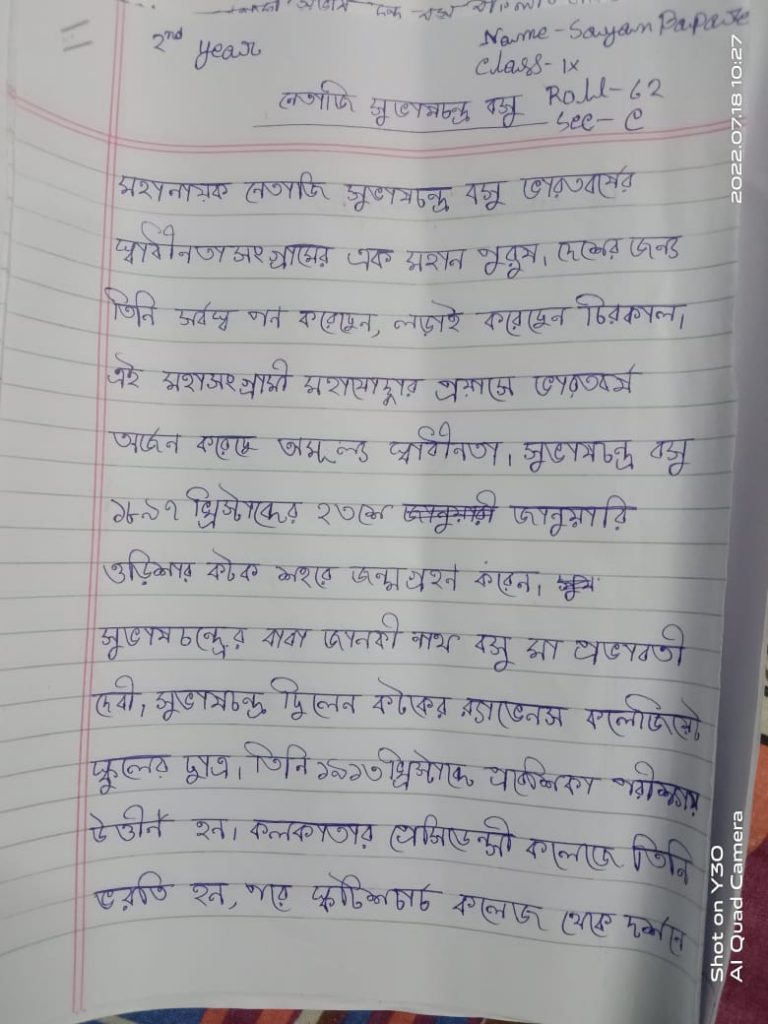 2nd year
Name- Sayan Paparte
Class- IX
নেতাজি সুভাষচন্দ্র বসু Roll- 62
Sec- C
মহানায়ক নেতাজি সুভাষচন্দ্র বসু ভারতবর্ষের
স্বাধীনতাসংগ্রামের এক মহান পুরুষ। দেশের জন্য
তিনি সর্বস্ব পন করেছেন, লড়াই করেছেন চিরকাল।
এই মহাসংগ্রামী মহাযোদ্ধার প্রয়াসে ভারতবর্ষ
অর্জন করেছে অমূল্য স্বাধীনতা। সুভাষচন্দ্র বসু
১৮৯৭ খ্রিস্টাব্দের ২৩শে জানুয়ারী জানুয়ারি
ওড়িশার কটক শহরে জন্মগ্রহন করেন।
সুভাষচন্দ্রের বাবা জানকী নাথ বসু মা প্রভাবতী
দেবী। সুভাষচন্দ্র ছিলেন কটকের র‍্যাভেনস কলেজিয়েট
স্কুলের ছাত্র। তিনি ১৯১৩খ্রিস্টাব্দে প্রবেশিকা পরীক্ষায়
উত্তীর্ন হন। কলকাতার প্রেসিডেন্সী কলেজে তিনি
ভরতি হন, পরে স্কটিশচার্চ কলেজ থেকে দর্শনে
2022.07.18 10:27
Shot on Y30
AI Quad Camera